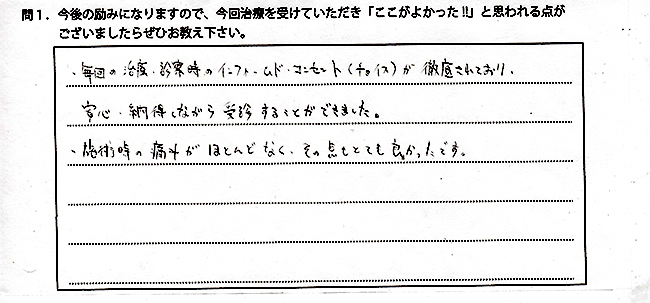 問1．今後の励みになりますので、今回治療を受けていただき「ここがよかった!!」と思われる点が
ございましたらぜひお教え下さい。
・毎回の治療・診察時のインフォームド・コンセント(チョイス)が徹底されており、
安心・納得しながら受診することができました。
・施術時の痛みがほとんどなく、その点もとても良かったです。